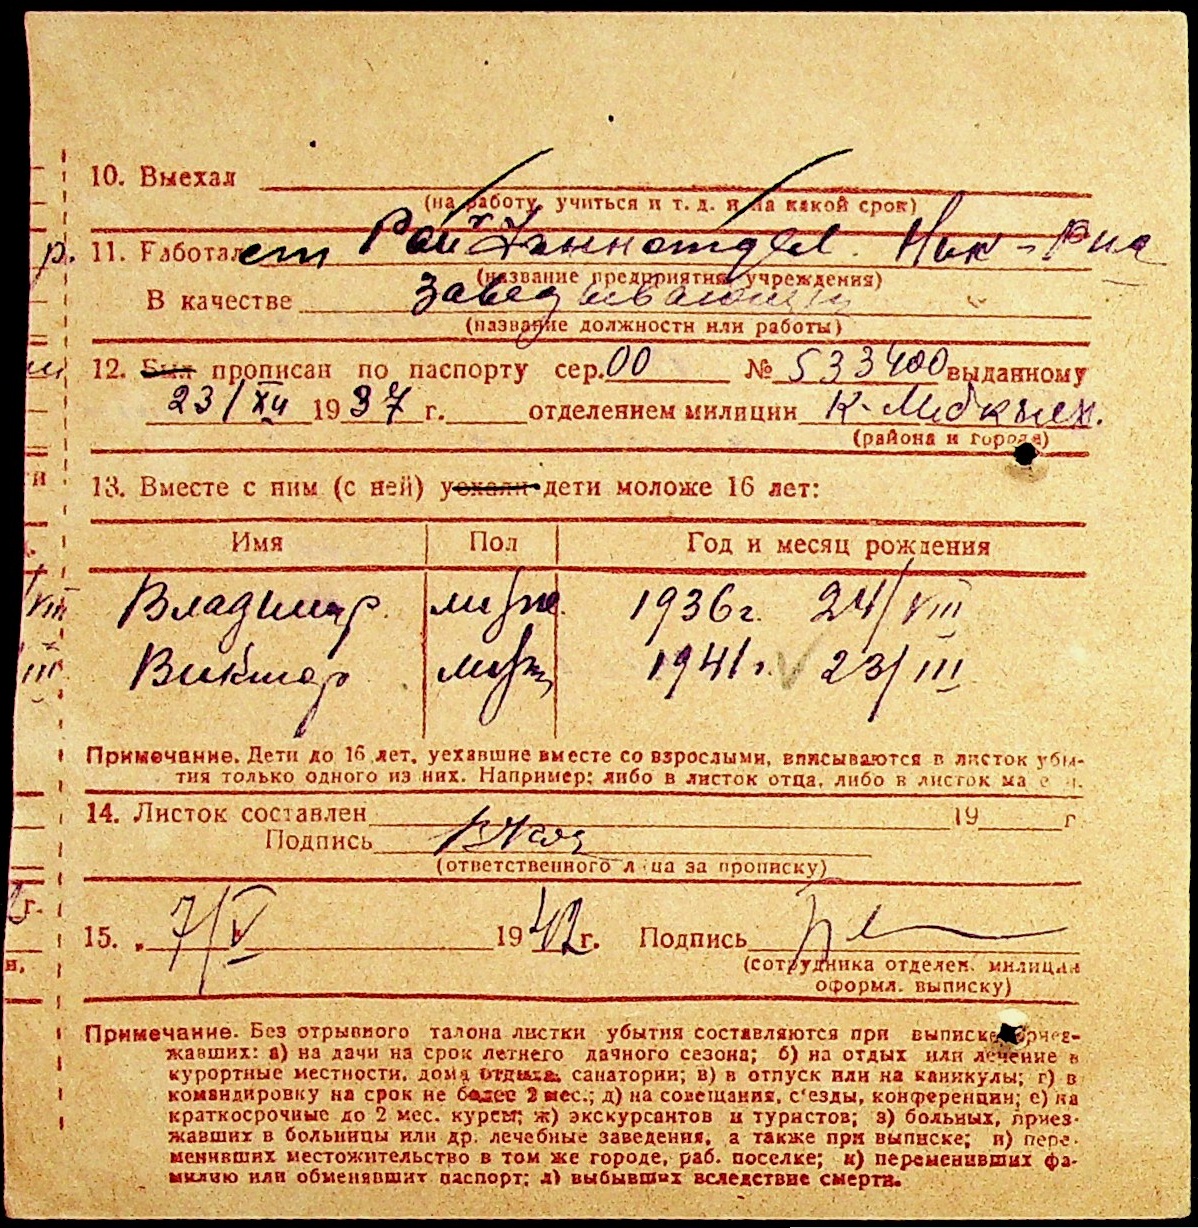 10. Выехал
(на работу, учиться и т. д. и на какой срок)
р. 11. Работает Рай
(название предприятия, учреждения)
В качестве Заведывающий
(название должности или работы)
12. Был прописан по паспорту сер. 00 № 533400 выданному
23/XII 1937 г. отделением милиции
(района и города)
13. Вместе с ним (с ней) уехали дети моложе 16 лет:
Имя Пол Год и месяц рождения
/VIII Владимир муж. 1936г. 24/VIII
/III Виктор муж 1941г. 23/III
Примечание. Дети до 16 лет, уехавшие вместе со взрослыми, вписываются в листок убы-
тия только одного из них. Например: либо в листок отца, либо в листок ма е и.
14. Листок составлен 19 г
Подпись
(ответственного лица за прописку)
г.
15. „ 7/V 1942 г. Подпись
(сотрудника отделен. милиции
оформл. выписку)
Примечание. Без отрывного талона листки убытия составляются при выписке приез-
жавших: а) на дачи на срок летнего дачного сезона; б) на отдых или лечение в
курортные местности, дома отдыха, санатории; в) в отпуск или на каникулы; г) в
командировку на срок не более 2 мес.; д) на совещания, с'езды, конференции; е) на
краткосрочные до 2 мес. курсы; ж) экскурсантов и туристов; з) больных, приез-
жавших в больницы или др. лечебные заведения, а также при выписке; и) пере-
менивших местожительство в том же городе, раб. поселке; к) переменивших фа-
милию или обменявшит паспорт; л) выбывших вследствие смерти.